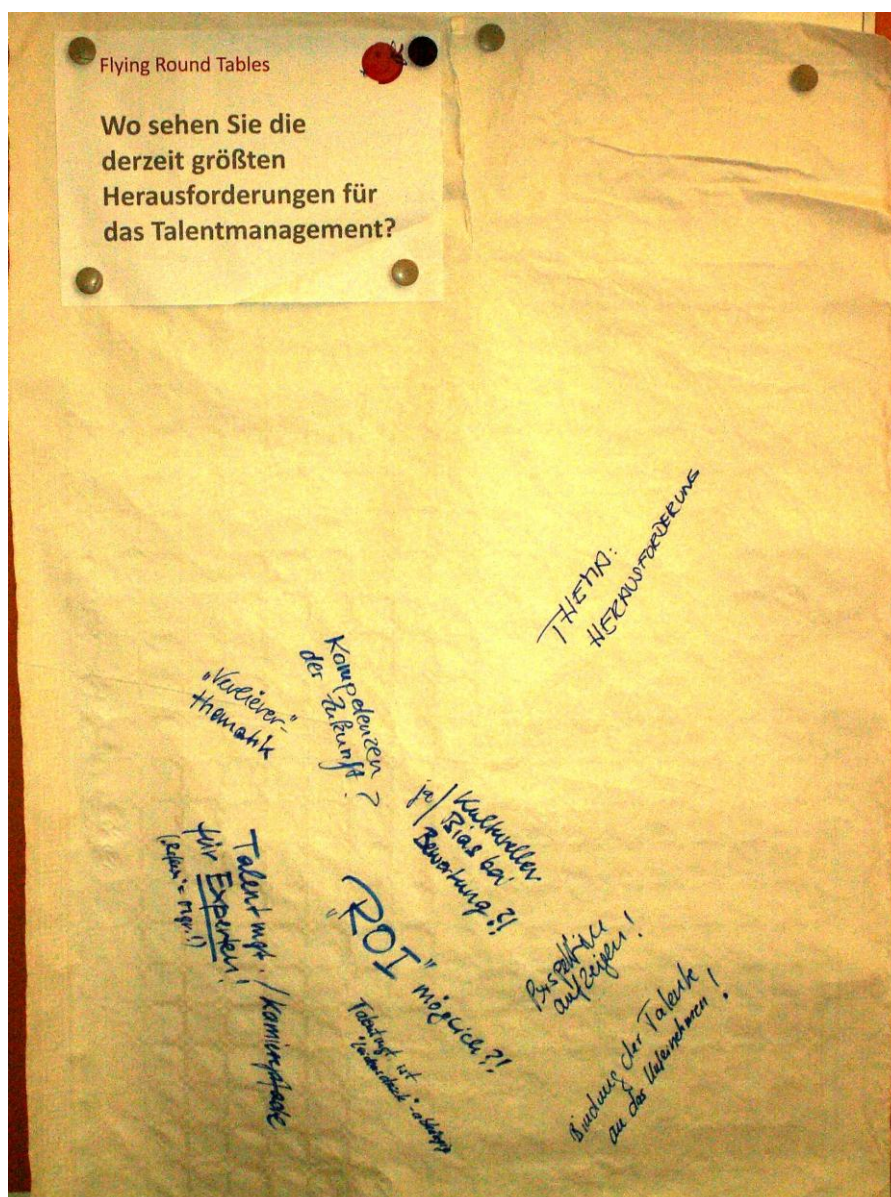 Flying Round Tables
Wo sehen Sie die
derzeit größten
Herausforderungen für
das Talentmanagement?
THEMA:
HERAUSFORDERUNG
Kompetenzen
der Zukunft?
"Verlierer"-
thematik
ja / Kultureller
Bias bei
Bewertung?!
Talentmgt. / Karrierepfade
für Experten!
= Mgr.!)
"ROI" möglich?!
Talentmgt ist
Perspektiven
aufzeigen!
Bindung der Talente
an das Unternehmen!